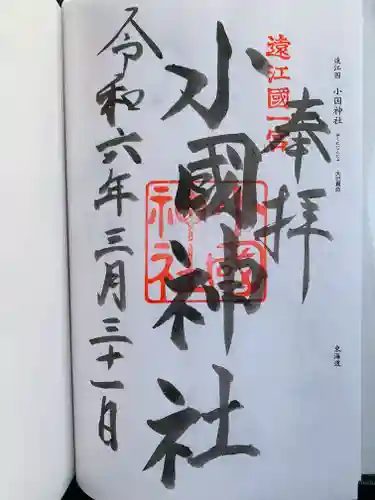 遠江国 小国神社
東海道
奉拝
遠江國一宮
小國神社
令和六年三月三十一日